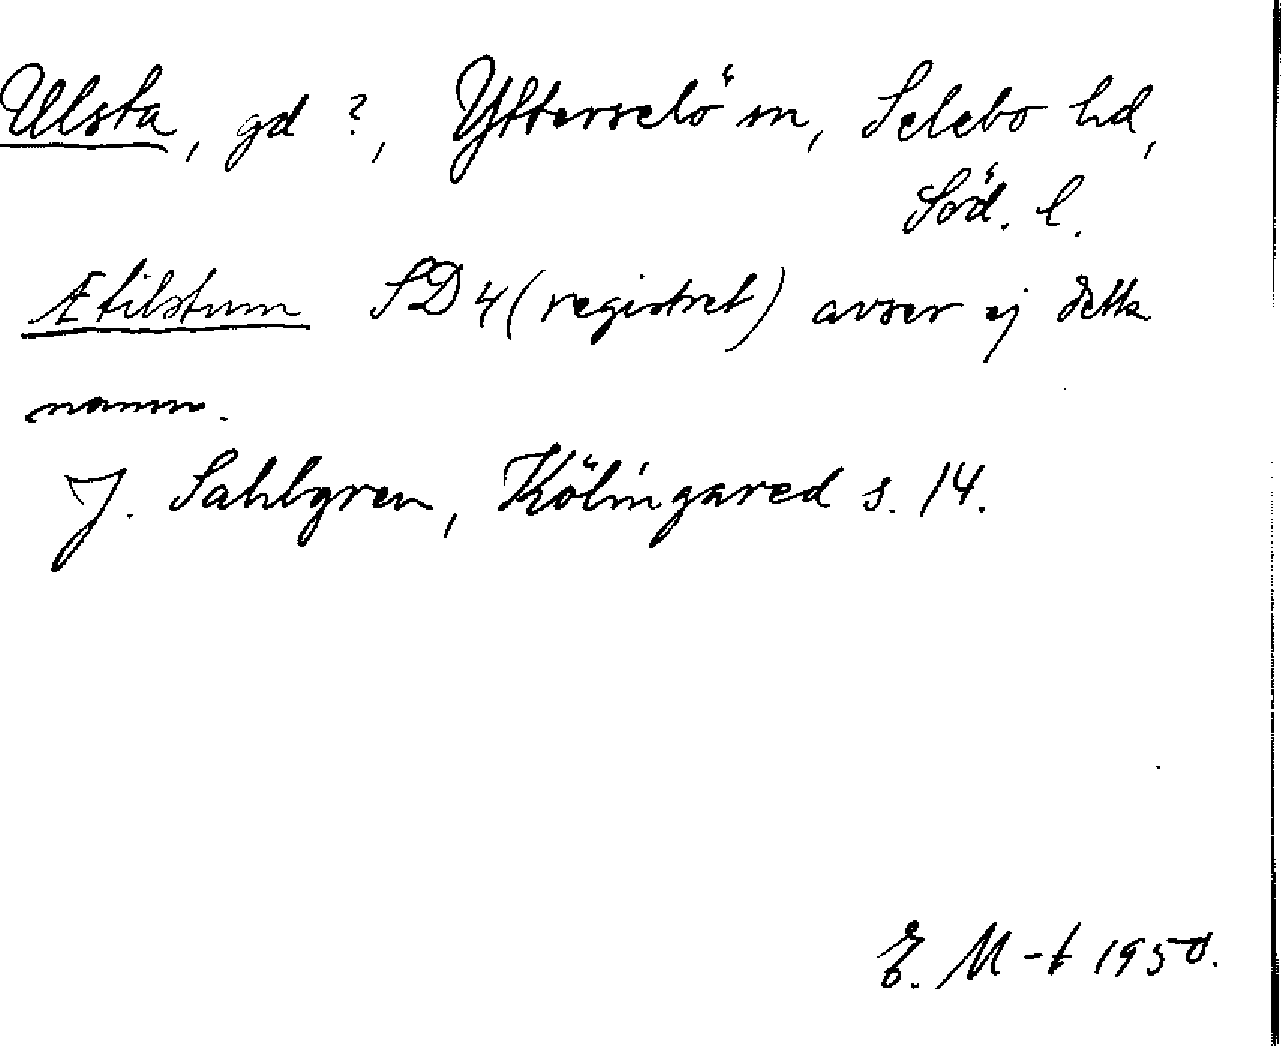 Ulsta, gd ?, Ytterselö sn, Selebo hd,
Söd. l.
Ætilstum SD 4 (registret) avser ej detta
namn.
J. Sahlgren, Kölingared s. 14.
E. M-t 1950.